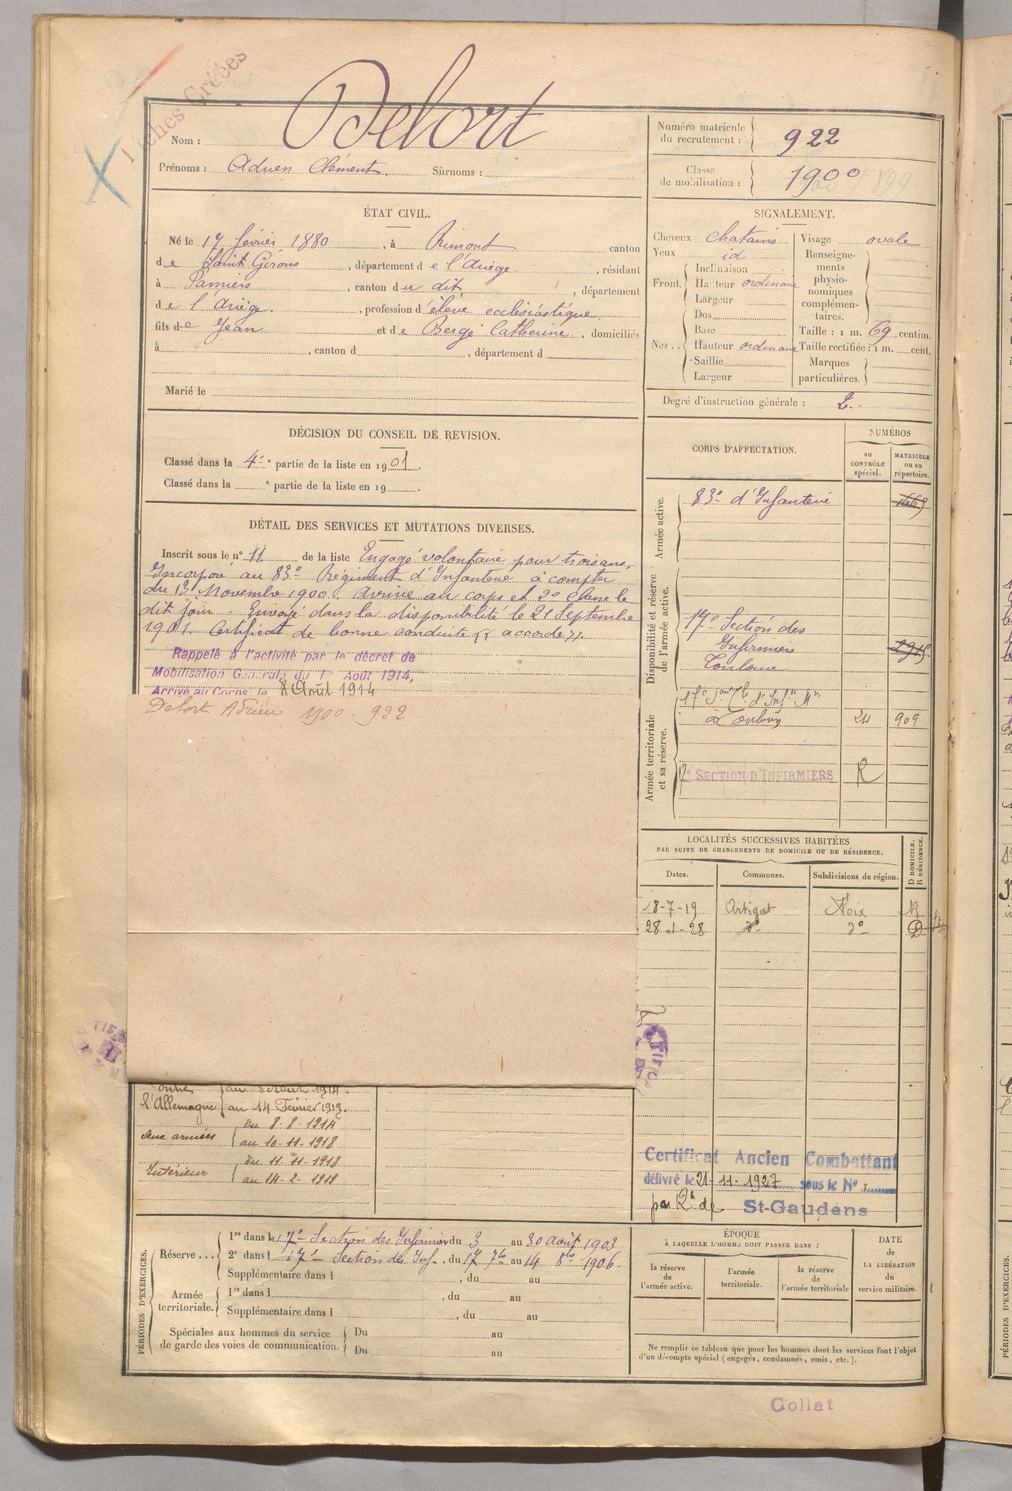 Fiches Créées
Nom : Delort
Prénoms : Adrien Clément. Surnoms :
Numéro matricule du recrutement : 922
Classe de mobilisation : 1900
ÉTAT CIVIL.
Né le 17 février 1880, à Rimont canton
de Saint Girons, département de l'Ariège, résidant
à Pamiers, canton du dit, département
de l'Ariège, profession d'élève ecclésiastique
fils de Jean et de Bergé Catherine, domiciliés
à , canton d , département d
Marié le
SIGNALEMENT.
Cheveux chatains
Yeux id
Front. Inclinaison
Hauteur ordinaire
Largeur
Nez.. Dos
Base
Hauteur ordinaire
Saillie
Largeur
Visage ovale
Renseignements physionomiques complémentaires.
Taille : 1 m. 69 centim.
Taille rectifiée : 1 m. cent.
Marques particulières.
Degré d'instruction générale :
DÉCISION DU CONSEIL DE REVISION.
Classé dans la 4e partie de la liste en 1901.
Classé dans la e partie de la liste en 19
DÉTAIL DES SERVICES ET MUTATIONS DIVERSES.
Inscrit sous le n° 11 de la liste Engagé volontaire pour trois ans,
Incorporé au 83e Régiment d'Infanterie à compter
du 13 Novembre 1900. Arrivé au corps et 2e classe le
dit jour. Envoyé dans la disponibilité le 21 Septembre
1901. Certificat de bonne conduite accordé
Rappelé à l'activité par le décret de
Mobilisation Générale du 1er Août 1914,
Arrivé au Corps le 8 Août 1914
Delort Adrien 1900 - 922
CORPS D'AFFECTATION.
NUMÉROS
au CONTRÔLE spécial.
MATRICULE ou au répertoire.
Armée active.
83e d'Infanterie
Disponibilité et réserve de l'armée active.
17e Section des
Infirmiers
Toulouse
Armée territoriale et sa réserve.
à Toulouse 24 909
SECTION D'INFIRMIERS R
LOCALITÉS SUCCESSIVES HABITÉES
PAR SUITE DE CHANGEMENTS DE DOMICILE OU DE RÉSIDENCE.
D DOMICILE. R RÉSIDENCE.
Dates. Communes. Subdivisions de région.
18-7-19 Artigat Foix R
28-1-28 do do D
l'Allemagne au 14 Février 1919.
aux armées du 8-8-1914
au 10-11-1918
Intérieur du 11-11-1918
Certificat Ancien Combattant
délivré le 21-11-1927 sous le N°
par de St-Gaudens
PÉRIODES D'EXERCICES.
Réserve... 1re dans la 17e Section des Infirmiers du 3 au 30 août 1903
2e dans l 17e Section des Inf. du 17 7bre au 14 8bre 1906.
Supplémentaire dans l , du au
Armée territoriale. 1re dans l , du au
Supplémentaire dans l , du au
Spéciales aux hommes du service de garde des voies de communication. Du au
Du au
ÉPOQUE
À LAQUELLE L'HOMME DOIT PASSER DANS :
la réserve de l'armée active.
l'armée territoriale.
la réserve de l'armée territoriale
DATE de LA LIBÉRATION du service militaire.
Ne remplir ce tableau que pour les hommes dont les services font l'objet
d'un décompte spécial (engagés, condamnés, omis, etc.).
Collat
PÉRIODES D'EXERCICES.